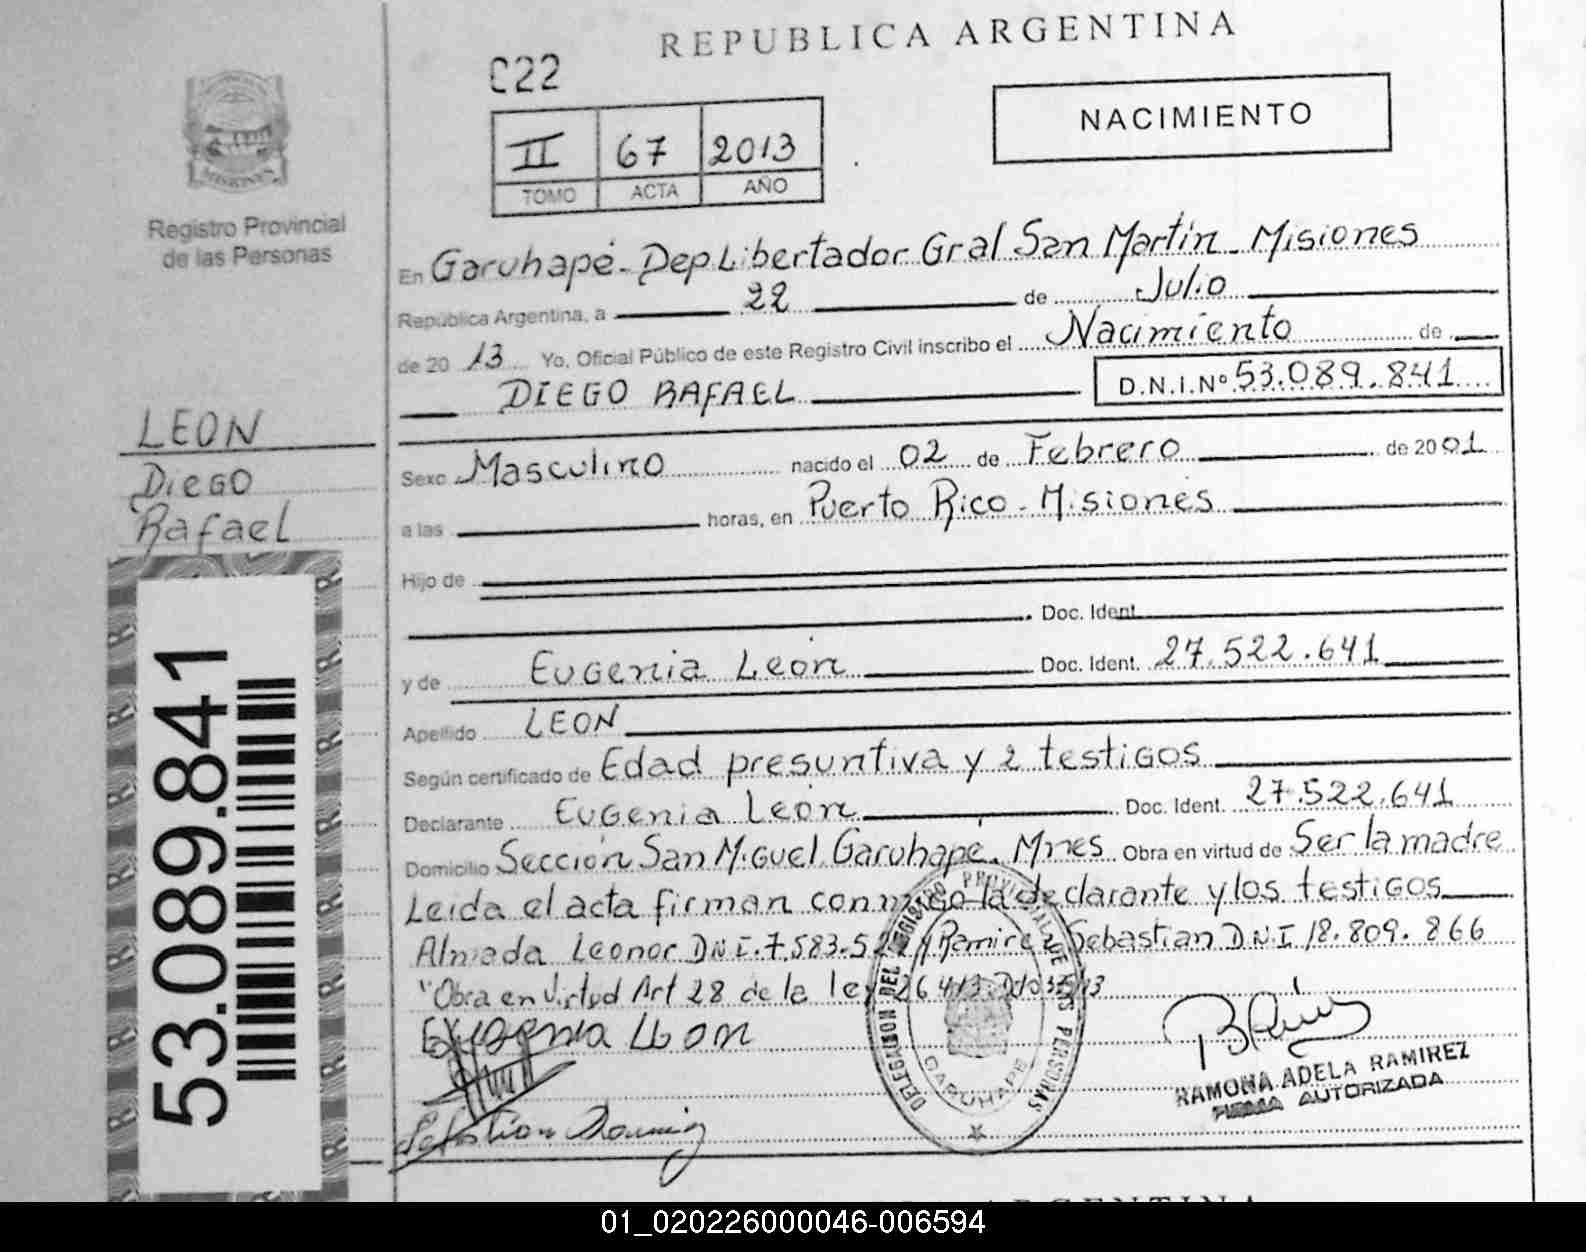 REPUBLICA ARGENTINA
C22
NACIMIENTO
II 67 2013
TOMO ACTA AÑO
MISIONES
Registro Provincial
de las Personas
En Garuhapé - Dep Libertador Gral San Martín - Misiones
República Argentina, a 22 de Julio
de 2013 Yo, Oficial Público de este Registro Civil inscribo el Nacimiento de
DIEGO RAFAEL D.N.I.Nº 53.089.841
LEON
Diego
Rafael
Sexo Masculino nacido el 02 de Febrero de 2001
a las horas, en Puerto Rico - Misiones
Hijo de
Doc. Ident.
y de Eugenia León Doc. Ident. 27.522.641
Apellido LEON
Según certificado de Edad presuntiva y 2 testigos
Declarante Eugenia León Doc. Ident. 27.522.641
Domicilio Sección San Miguel Garuhapé. Mnes Obra en virtud de Ser la madre
Leida el acta firman conmigo la declarante y los testigos
Almada Leonor DNI. 7.583.5 y Ramirez Sebastian DNI 18.809.866
"Obra en Virtud Art 28 de la ley 26413
Eugenia Leon
53.089.841
DELEGACION DEL REGISTRO PROVINCIAL DE LAS PERSONAS
GARUHAPE
RAMONA ADELA RAMIREZ
FIRMA AUTORIZADA
Sebastian Ramirez
ARGENTINA
01_020226000046-006594